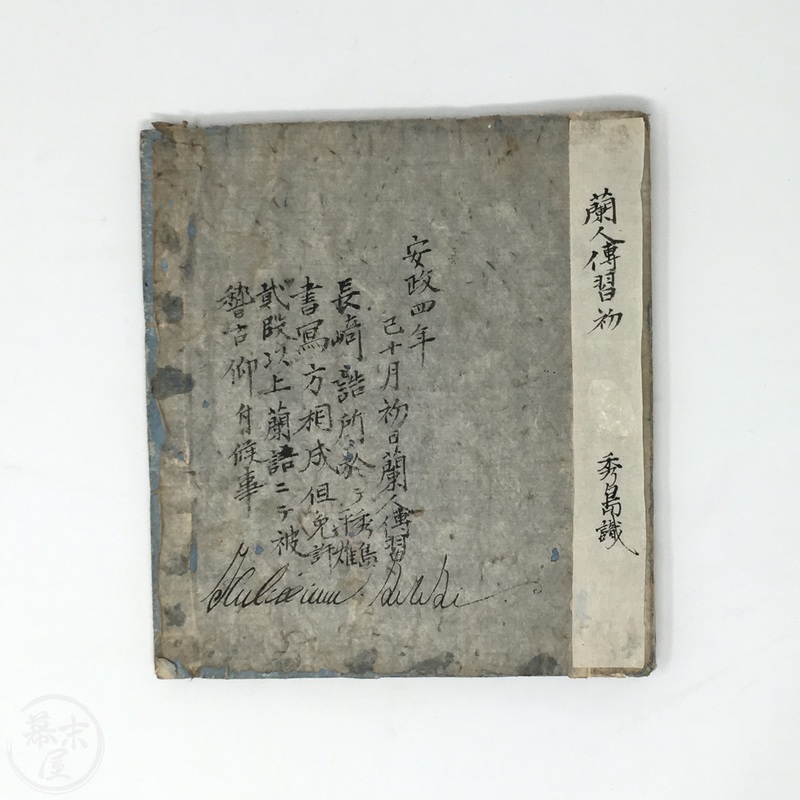 蘭人傳習初
秀島識
安政四年
己十月初日蘭人傳習
長﨑詰所於テ秀島
書寫方相成但免許
貳段以上蘭語ニテ被
嵆古仰付候事
幕末屋